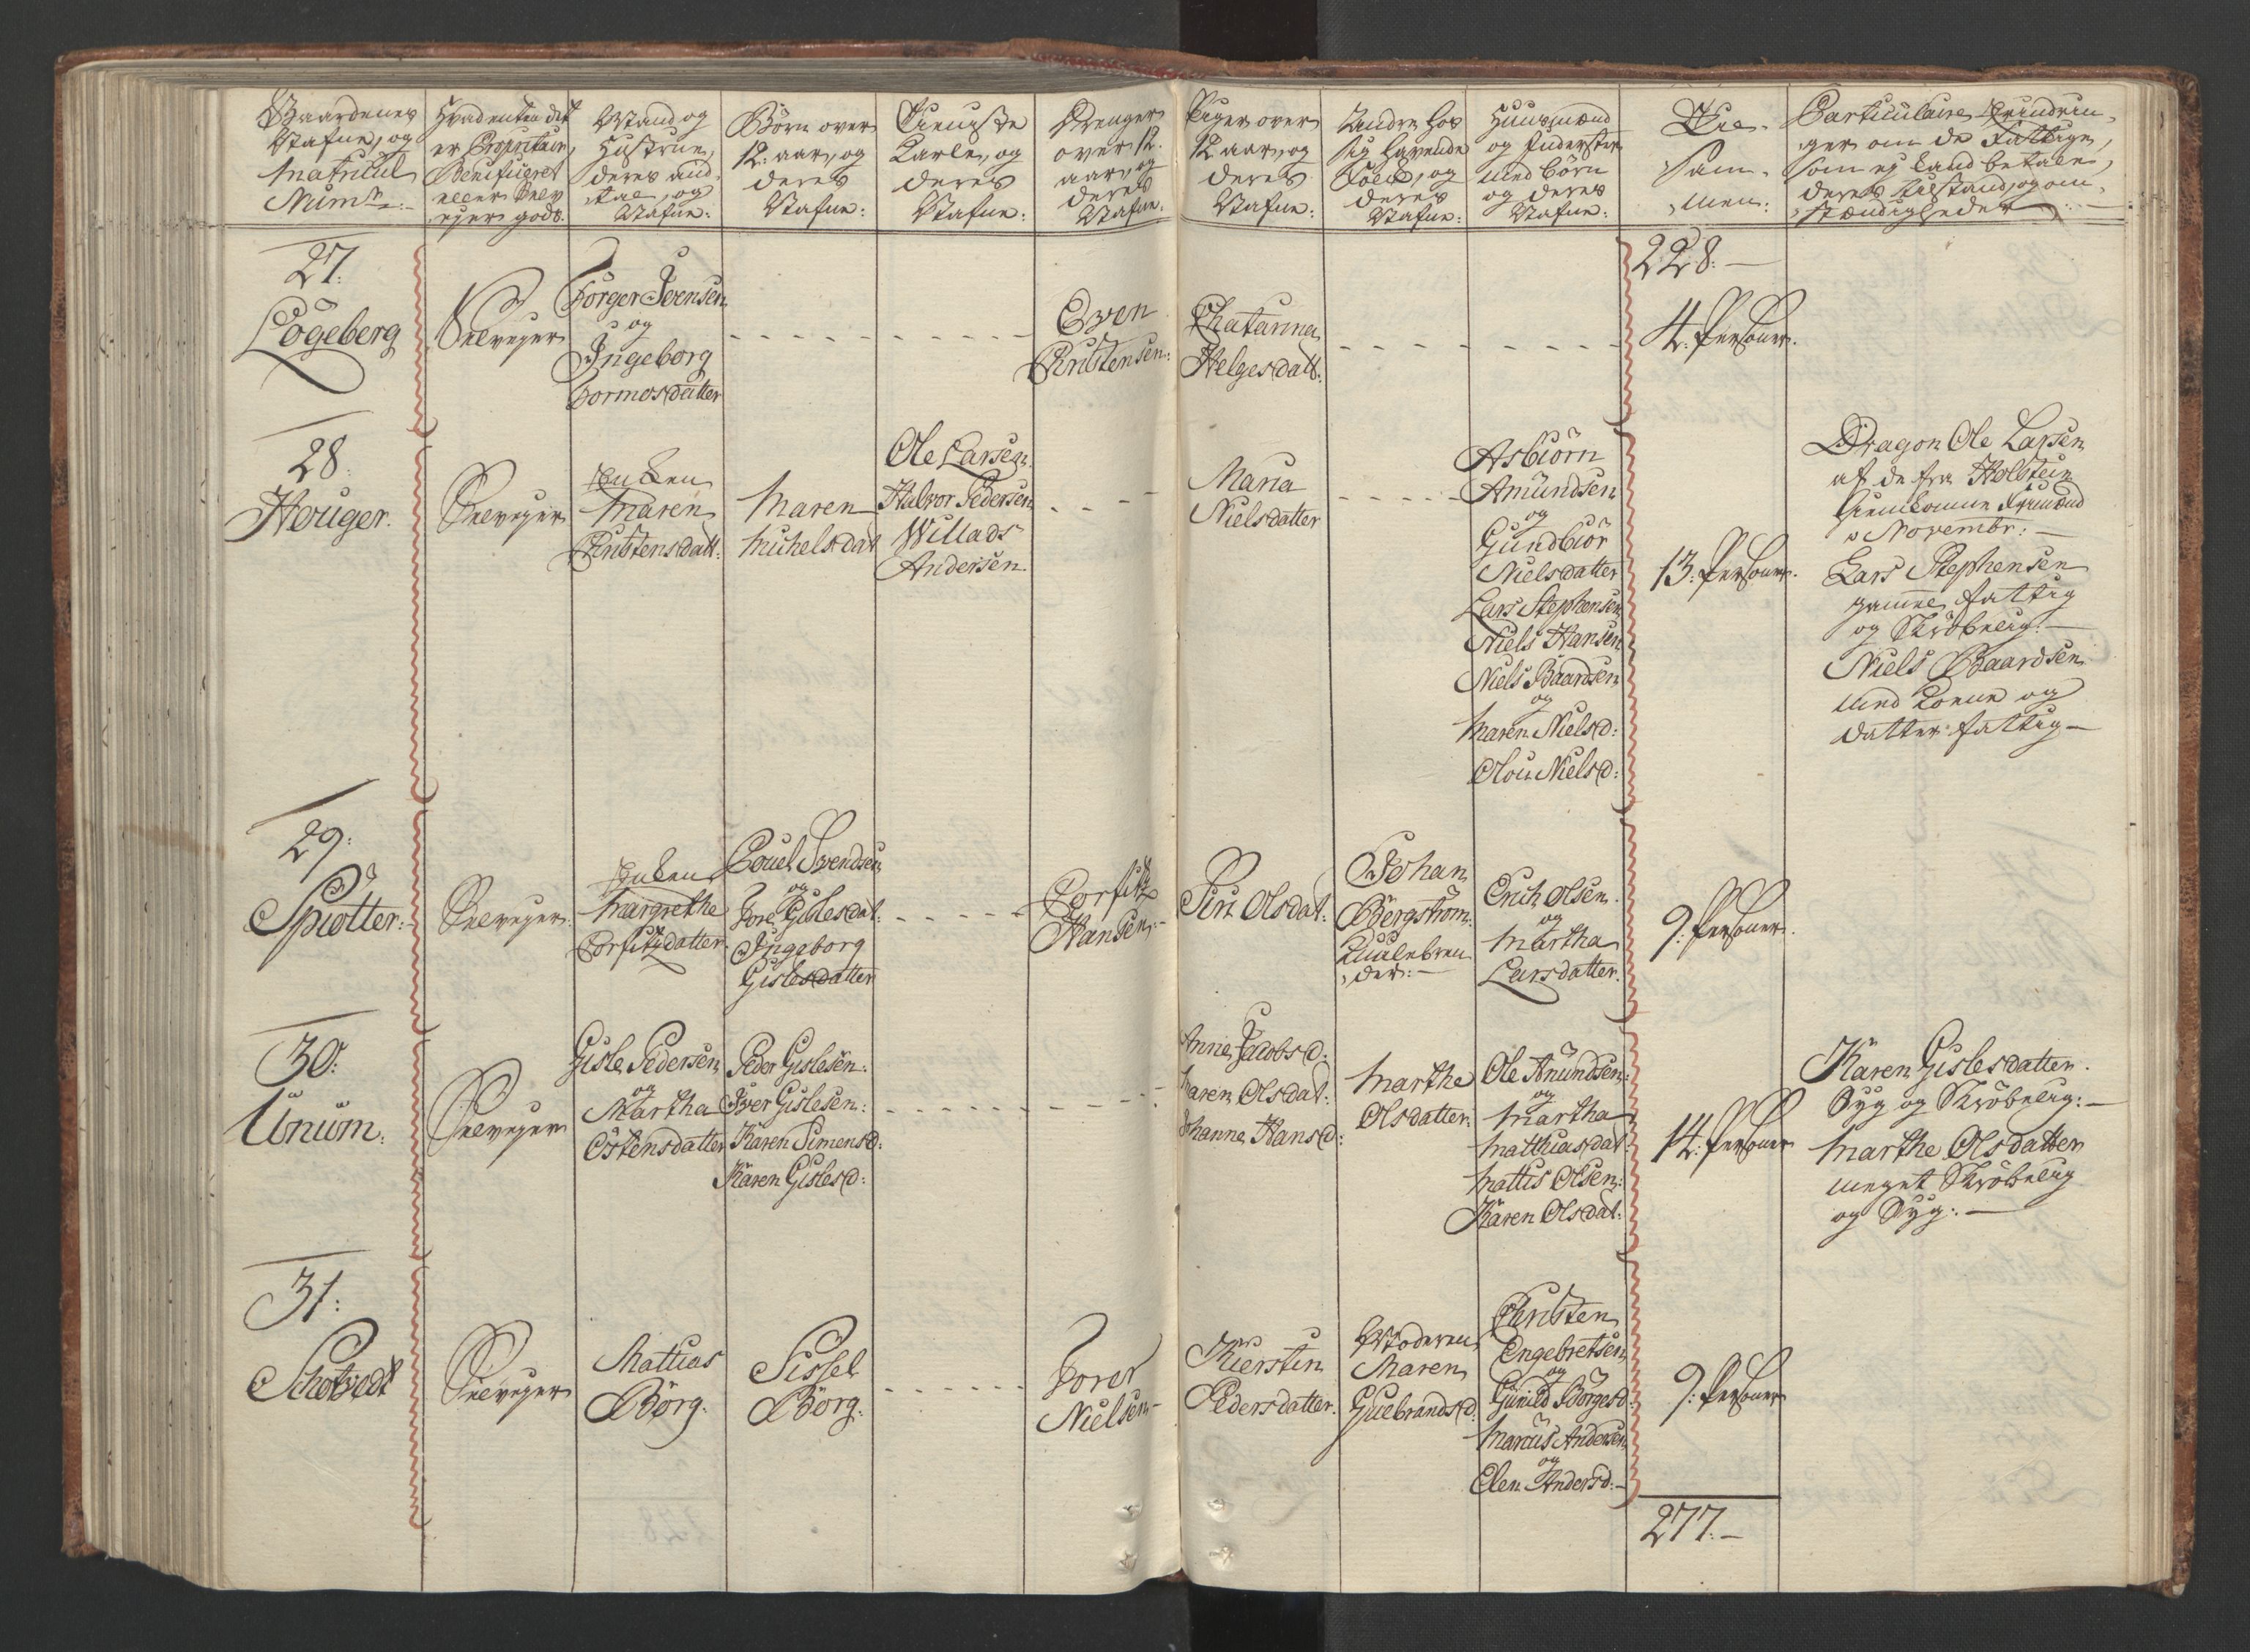 Gaardenes
Nafne, og
Matricul
Num:
Hvad enten det
er Propritair,
Benificeret
eller Selv
ejer gods:
Mand og
Hustrue,
deres an-
tal, og
Nafne:
Börn over
12: aar, og
deres
Nafne:
Tieniste
Karle, og
deres
Nafne:
Drenger
over 12.
aar, og
deres
Nafne:
Piger over
12 aar, og
deres
Nafne:
Andre hos
sig havende
Folck, og
deres
Nafne:
Huusmænd
og Inderster
med Börn
og deres
Nafne:
Til-
sam-
men:
Particulaire Erindrin-
ger om de Fattige,
som ej kand betale,
deres Tilstand, og om-
stændigheder
228:
27:
Lögeberg
Selvejer
Börger Ivensen
og
Ingeborg
Tormosdatter
Even
Christensen:
Chatarina
Helgesdatt:
4. Persouner.
28:
Houger.
Selvejer
Encken
Maren
Christensdatt:
Maren
Michelsdat
Ole Larsen
Halvor Pedersen
Willads
Andersen.
Maria
Nielsdatter
Asbiörn
Amundsen
og
Gundbiör
Nielsdatter
Lars Stephensen
Niels Hansen
Niels Baardsen
og
Maren Nielsd:
Olou Nielsd:
13: Persouner.
Dragon Ole Larsen
af de fra Holsteen
hiemkomne
Novembr:
Lars Stephensen
gammel fattig
og Skröbelig:
Niels Baardsen
med Kone og
datter fattig
29:
Spiötter:
Selvejer.
Encken
Margrethe
Corfitzdatter
Pouel Svendsen
og
Tore Gislesdat:
Ingeborg
Gislesdatter
Corfitz
Hansen.
Siri Olsdat:
Johan
Bergström:
Kuulebren
der:
Erich Olsen.
og
Martha
Larsdatter.
9: Persouner.
30:
Unum:
Selvejer
Gisle Pedersen
og
Martha
Östensdatter
Peder Gislesen:
Iver Gislesen:
Karen Simensd:
Karen Gislesd:
Anne Jacobsd:
Maren Olsdat:
Johanne Hansd:
Marthe
Olsdatter:
Ole Anundsen:
og
Martha
Matthiasdat
Mattis Olsen:
Karen Olsdat:
14: Persouner
Karen Gislesdatter.
Syg og Skröbelig:
Marthe Olsdatter
meget Skröbelig
og Syg:
31:
Schotvedt
Selvejer
Mattias
Börg:
Sissel
Börg:
Torer
Nielsen
Kierstin
Pedersdatter.
Moderen
Maren
Gulbrandsd:
Christen
Engebretsen
og
Gunild Börgesd:
Marcus Andersen
og
Elen Andersd:
9: Persouner
277.